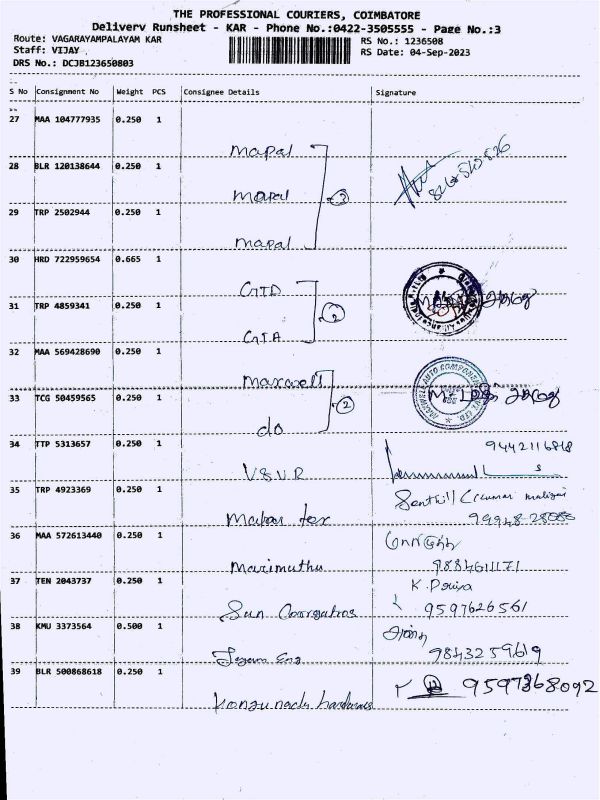 THE PROFESSIONAL COURIERS, COIMBATORE
Delivery Runsheet - KAR - Phone No.:0422-3505555 - Page No.:3
Route: VAGARAYAMPALAYAM KAR
RS No.: 1236508
Staff: VIJAY
RS Date: 04-Sep-2023
DRS No.: DCJB123650803
S No Consignment No Weight PCS Consignee Details Signature
27 MAA 104777935 0.250 1
mapal
28 BLR 120138644 0.250 1
mapal
3
29 TRP 2502944 0.250 1
mapal
30 HRD 722959654 0.665 1
GTD
31 TRP 4859341 0.250 1
2
GTA
32 MAA 569428690 0.250 1
maxwell
33 TCG 50459565 0.250 1
2
do
34 TTP 5313657 0.250 1
VSVR
35 TRP 4923369 0.250 1
Senthil Kumar
99948-28080
tex
36 MAA 572613440 0.250 1
Marimuthu
9884611171
37 TEN 2043737 0.250 1
K. Priya
Sun
9597626561
38 KMU 3373564 0.500 1
9843259619
39 BLR 500868618 0.250 1
9597368092